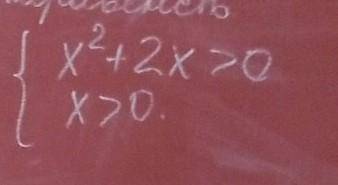 x²+2x>0
x>0.